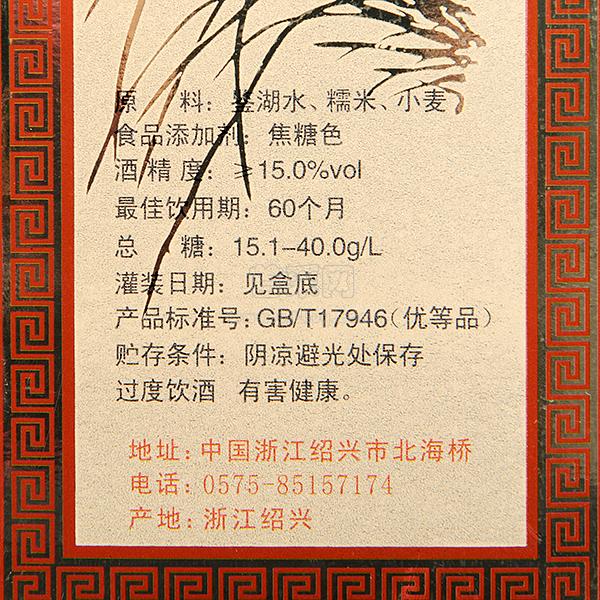 原 料：鉴湖水、糯米、小麦
食品添加剂：焦糖色
酒 精 度：≥15.0%vol
最佳饮用期：60个月
总 糖：15.1-40.0g/L
灌装日期：见盒底
产品标准号：GB/T17946（优等品）
贮存条件：阴凉避光处保存
过度饮酒 有害健康。
地址：中国浙江绍兴市北海桥
电话：0575-85157174
产地：浙江绍兴